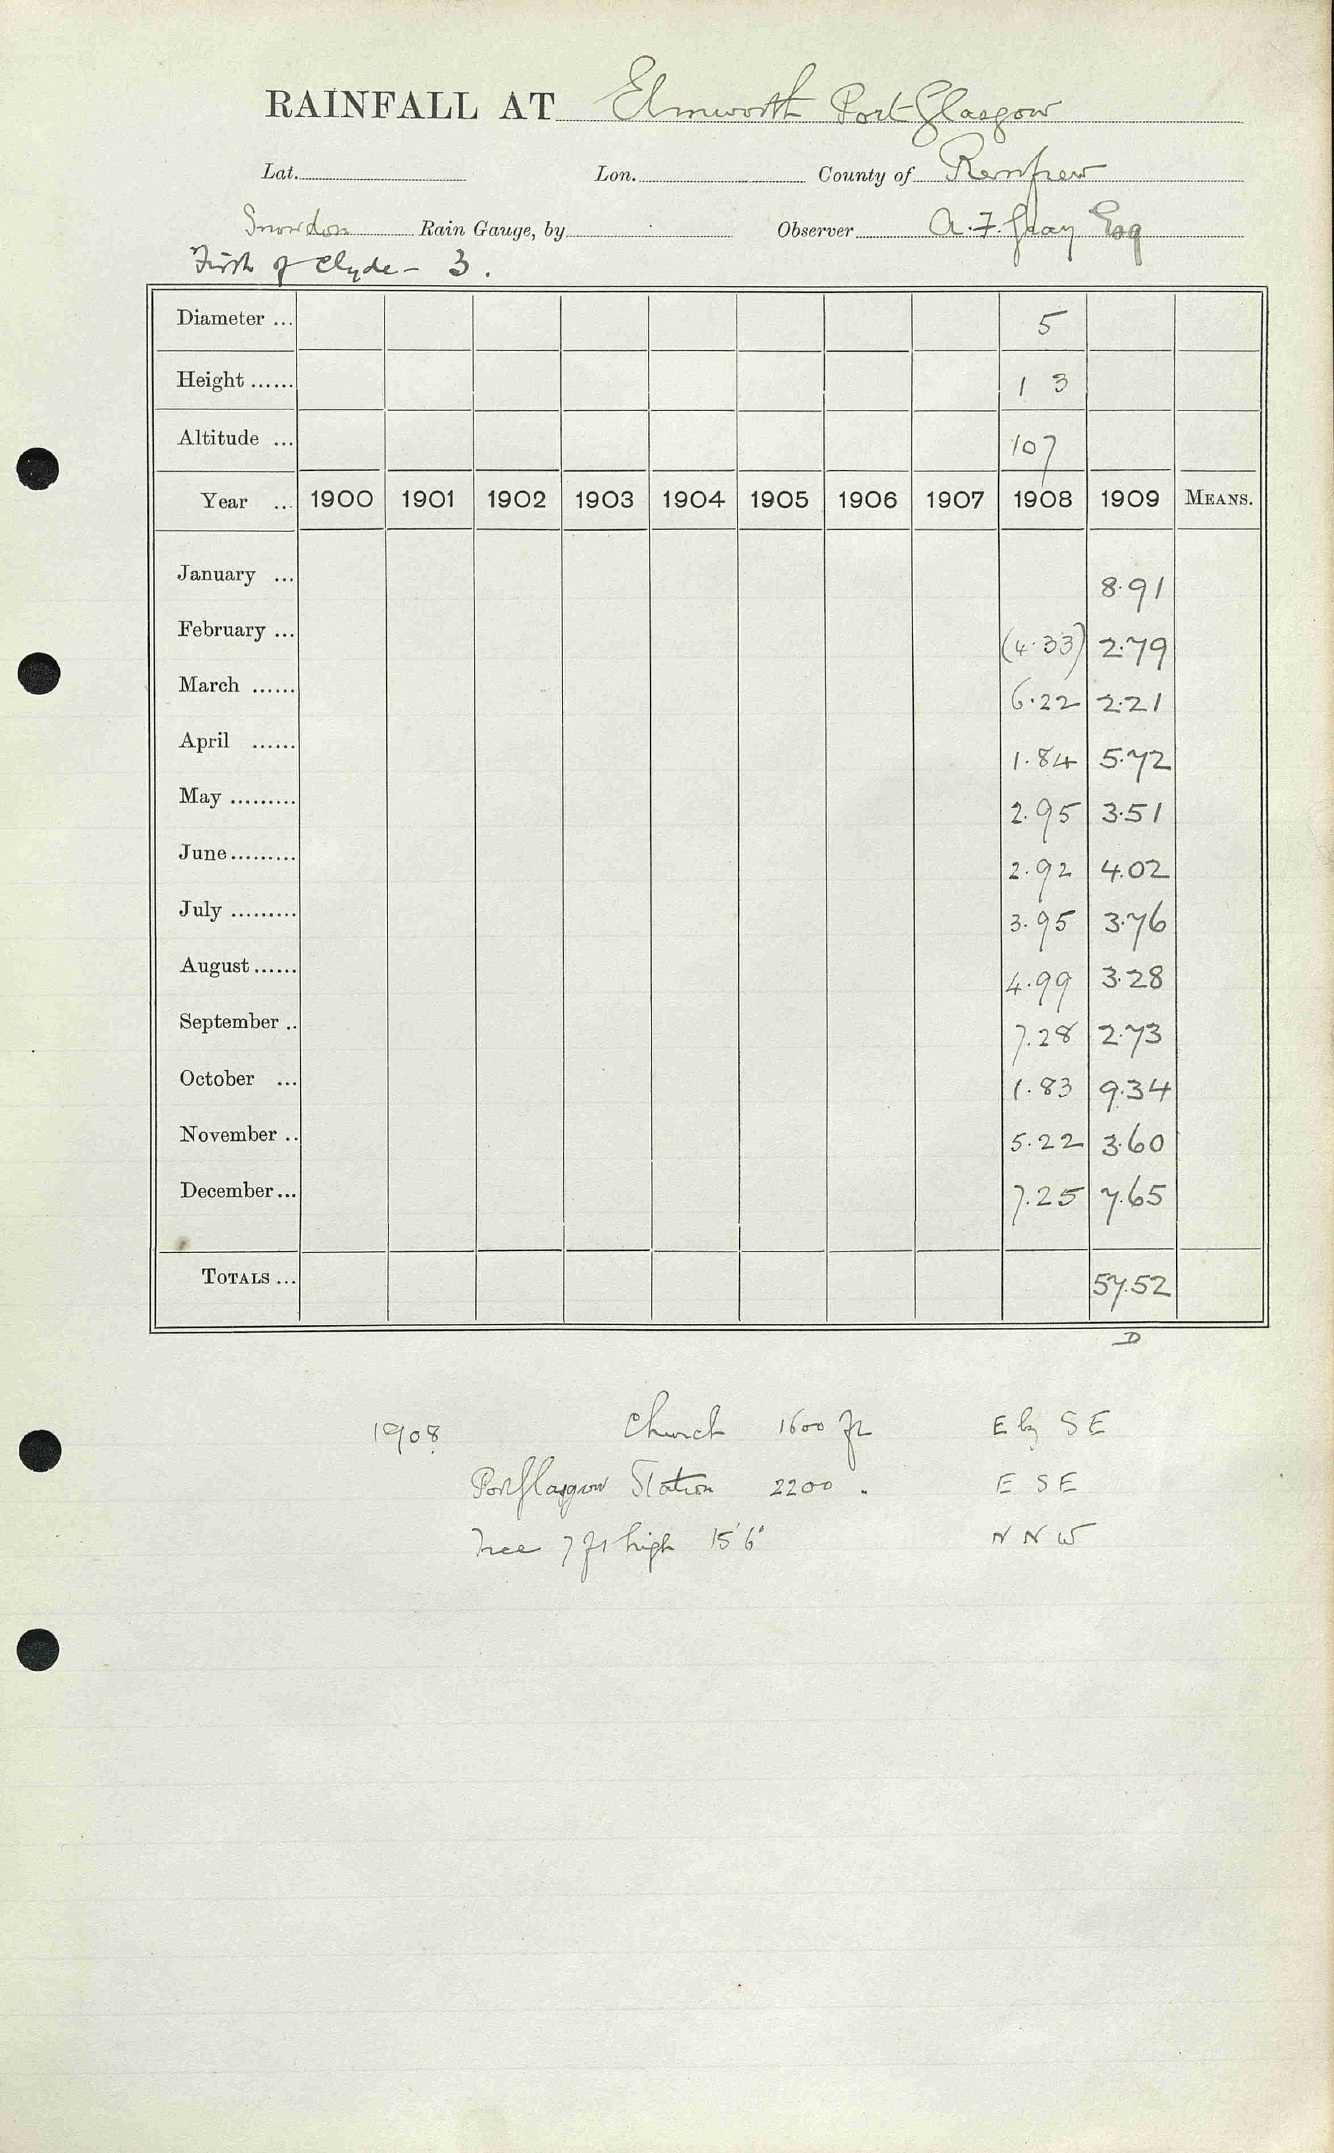 RAINFALL AT Elmworth Port-Glasgow
Lat. Lon. County of Renfrew
Snowdon Rain Gauge, by Observer A.F. Gray Esq
Firth of Clyde - 3.
Diameter ... 5
Height ...... 1 3
Altitude ... 107
Year ... 1900 1901 1902 1903 1904 1905 1906 1907 1908 1909 MEANS.
January ... 8.91
February ... (4.33) 2.79
March ...... 6.22 2.21
April ...... 1.84 5.72
May ......... 2.95 3.51
June ......... 2.92 4.02
July ......... 3.95 3.76
August ...... 4.99 3.28
September .. 7.28 2.73
October ... 1.83 9.34
November .. 5.22 3.60
December ... 7.25 7.65
TOTALS ... 57.52
D
1908 Church 1600 ft E by S E
Port Glasgow Station 2200 " E S E
Tree 7 ft high 15'6" N N W